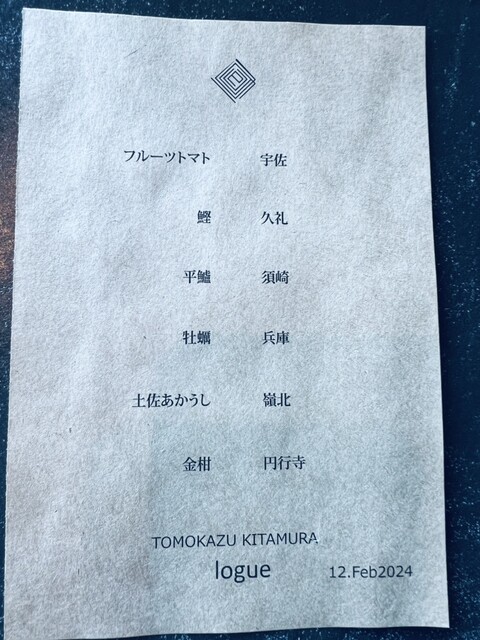 フルーツトマト 宇佐
鰹 久礼
平鱸 須崎
牡蠣 兵庫
土佐あかうし 嶺北
金柑 円行寺
TOMOKAZU KITAMURA
logue 12.Feb2024